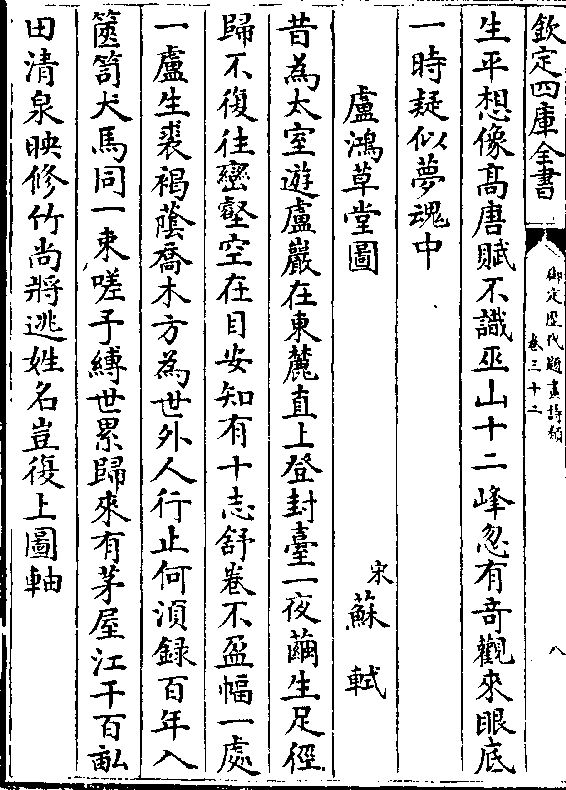 欽定四庫全書
御定歷代題畫詩類
卷三十二
八
生平想像高唐賦不識巫山十二峰忽有奇觀來眼底
一時疑似夢魂中
盧鴻草堂圖
宋蘇軾
昔為太室遊盧巖在東麓直上登封臺一夜繭生足徑
歸不復往巒壑空在目安知有十志舒卷不盈幅一處
一盧生裘褐蔭喬木方為世外人行止何湏録百年入
篋笥犬馬同一束嗟予縛世累歸來有茅屋江干百畝
田清泉映修竹尚將逃姓名豈復上圖軸